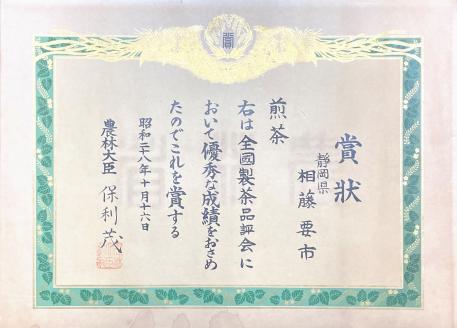 賞
賞状
静岡県
相藤要市
煎茶
右は全國製茶品評会に
おいて優秀な成績をおさめ
たのでこれを賞する
昭和二十八年十月十六日
農林大臣 保利茂